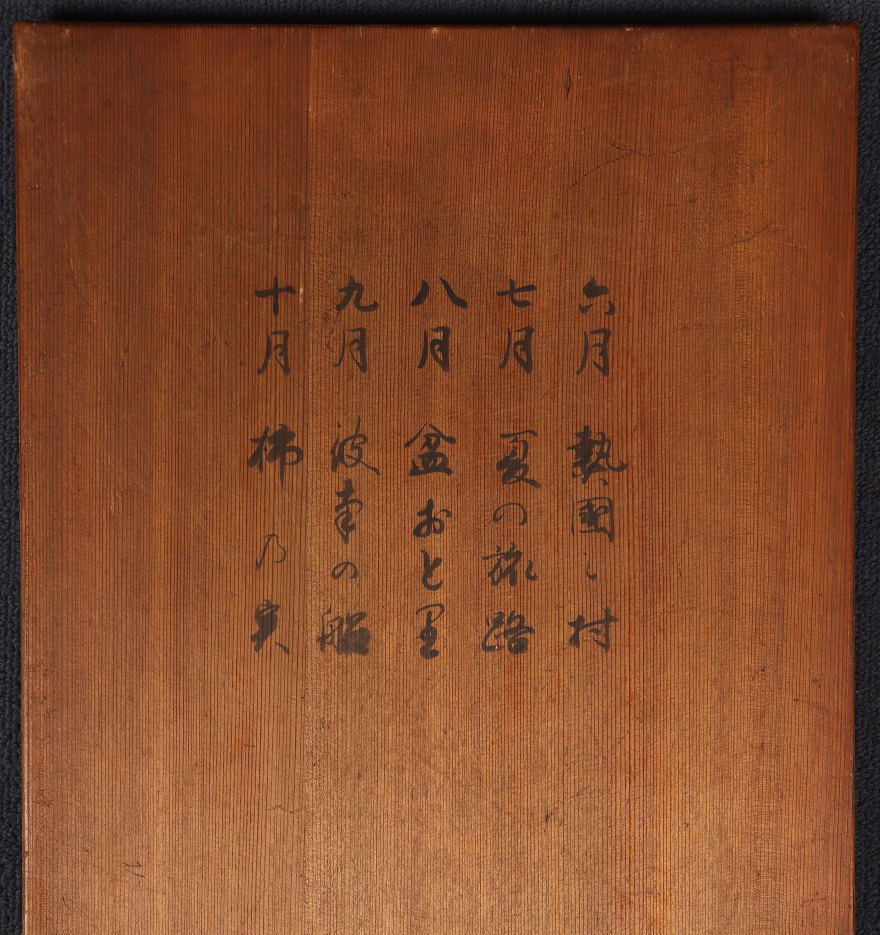 六月 熱國之村
七月 夏の旅路
八月 盆おと里
九月 波 の船
十月 柿乃実